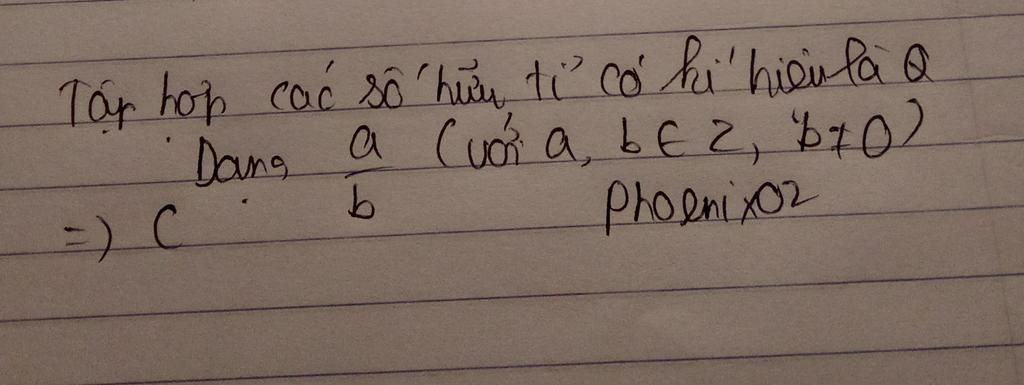 Tập hợp các số hữu tỉ có kí hiệu là Q
Dạng a/b (với a, b ∈ Z, b ≠ 0)
=) C
Phoenix02